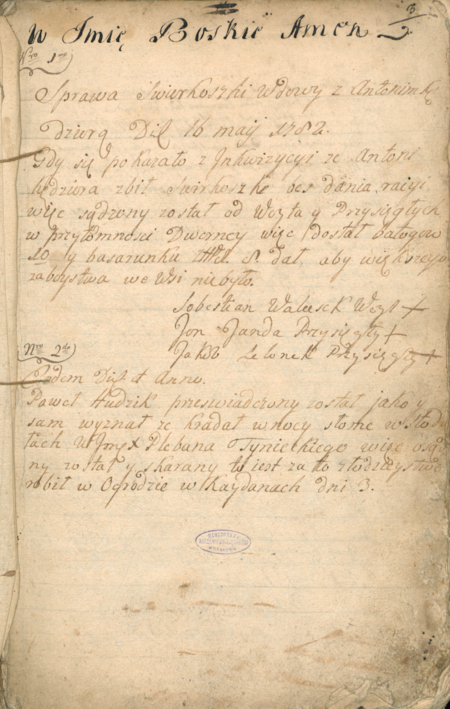 3
W Imię Boskie Amen
Nro 1mo
Sprawa Swierkoszki Wdowy z Antonim Kę
dziurą Die 16 maij 1782.
Gdy się pokazało z Inkwizycyi ze Antoni
Kędziura zbił Swirkoszkę bes dania racyi
więc sądzony został od Wóyta y Przysięgłych
w przytomnosci Dworney więc dostał batogow
10 ty basarunku 8. dał, aby większego
zaboystwa we Wsi niebyło.
Sobestian Walasek Woyt +
Jan Janda Przysięgły +
Nro 2do
Jakób Lelonek Przysięgły +
Eodem Die et Anno.
Paweł Hudzik przeswiadczony został jako y
sam wyznał ze kradał w nocy słome w Stodo
łach Plebana Tynieckiego więc osądzo
ny został y skarany to jest za to złodzieystwo
robił w Ogrodzie w Kaydanach dni 3.